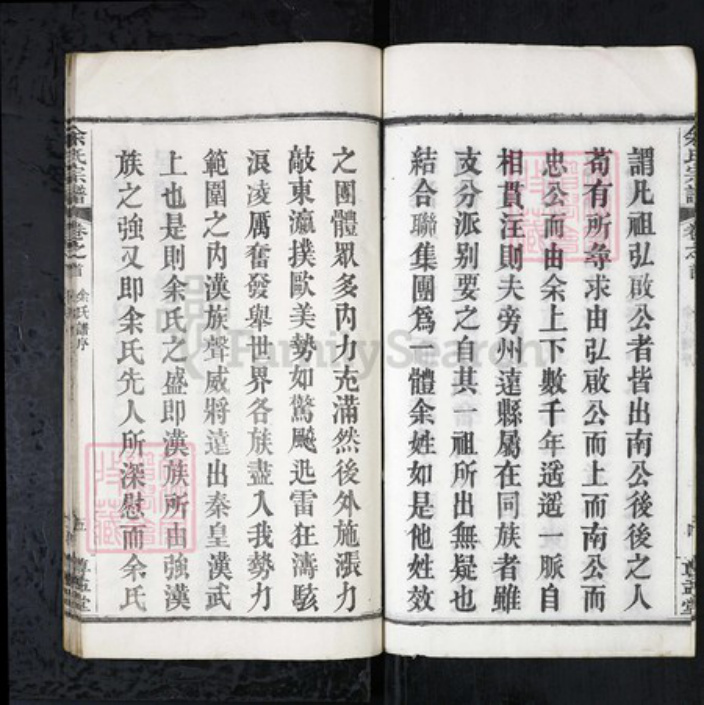 謂凡祖弘啟公者皆出南公後後之人
苟有所尋求由弘啟公而上而南公而
忠公而由余上下數千年遙遙一脈自
相貫注則夫旁州遠縣屬在同族者雖
支分派别要之自其一祖所出無疑也
結合聯集團爲一體余姓如是他姓效
之團體眾多内力充滿然後外施漲力
敲東瀛撲歐美勢如驚飈迅雷狂濤駭
浪凌厲奮發舉世界各族盡入我勢力
範圍之内漢族聲威將遠出秦皇漢武
上也是則余氏之盛即漢族所由強漢
族之強又即余氏先人所深慰而余氏
余氏宗譜
卷之首
余氏譜序
五
FamilySearch